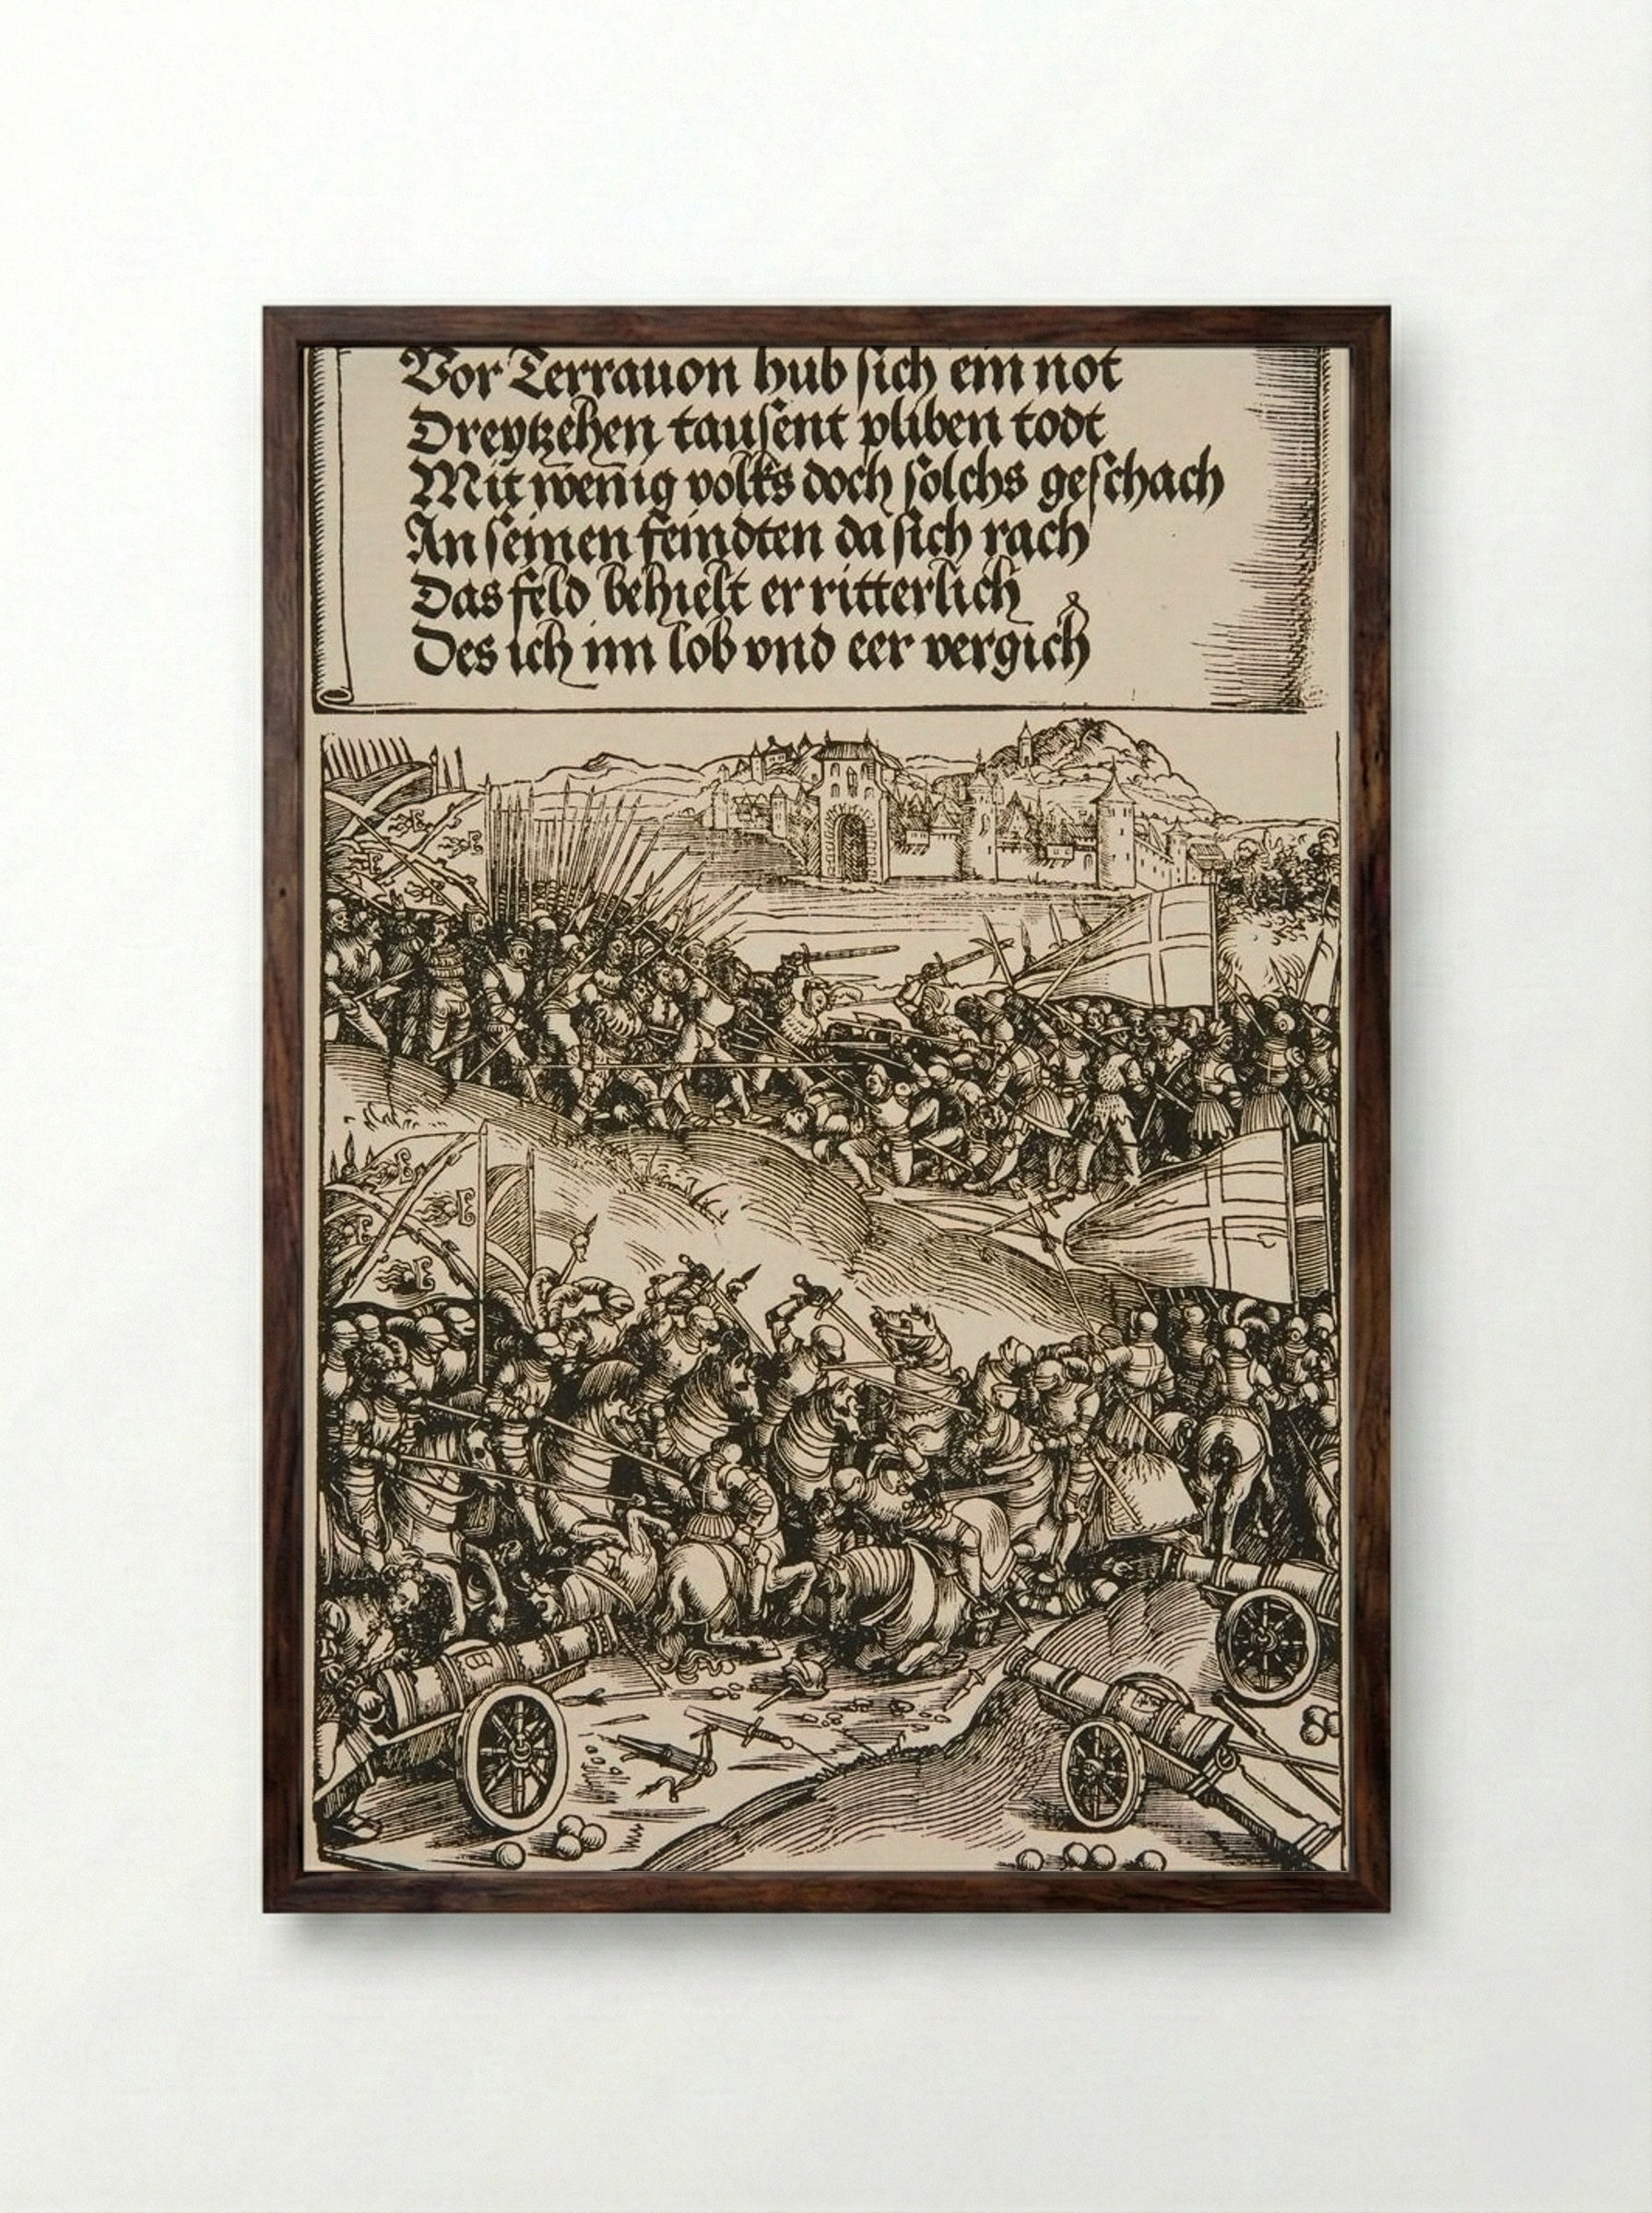 Vor Terrauon hub sich ein not
Dreytzehen tausent pliben todt
Mit wenig volks doch solchs geschach
An seinen feindten da sich rach
Das feld behielt er ritterlich
Des ich im lob vnd eer vergich